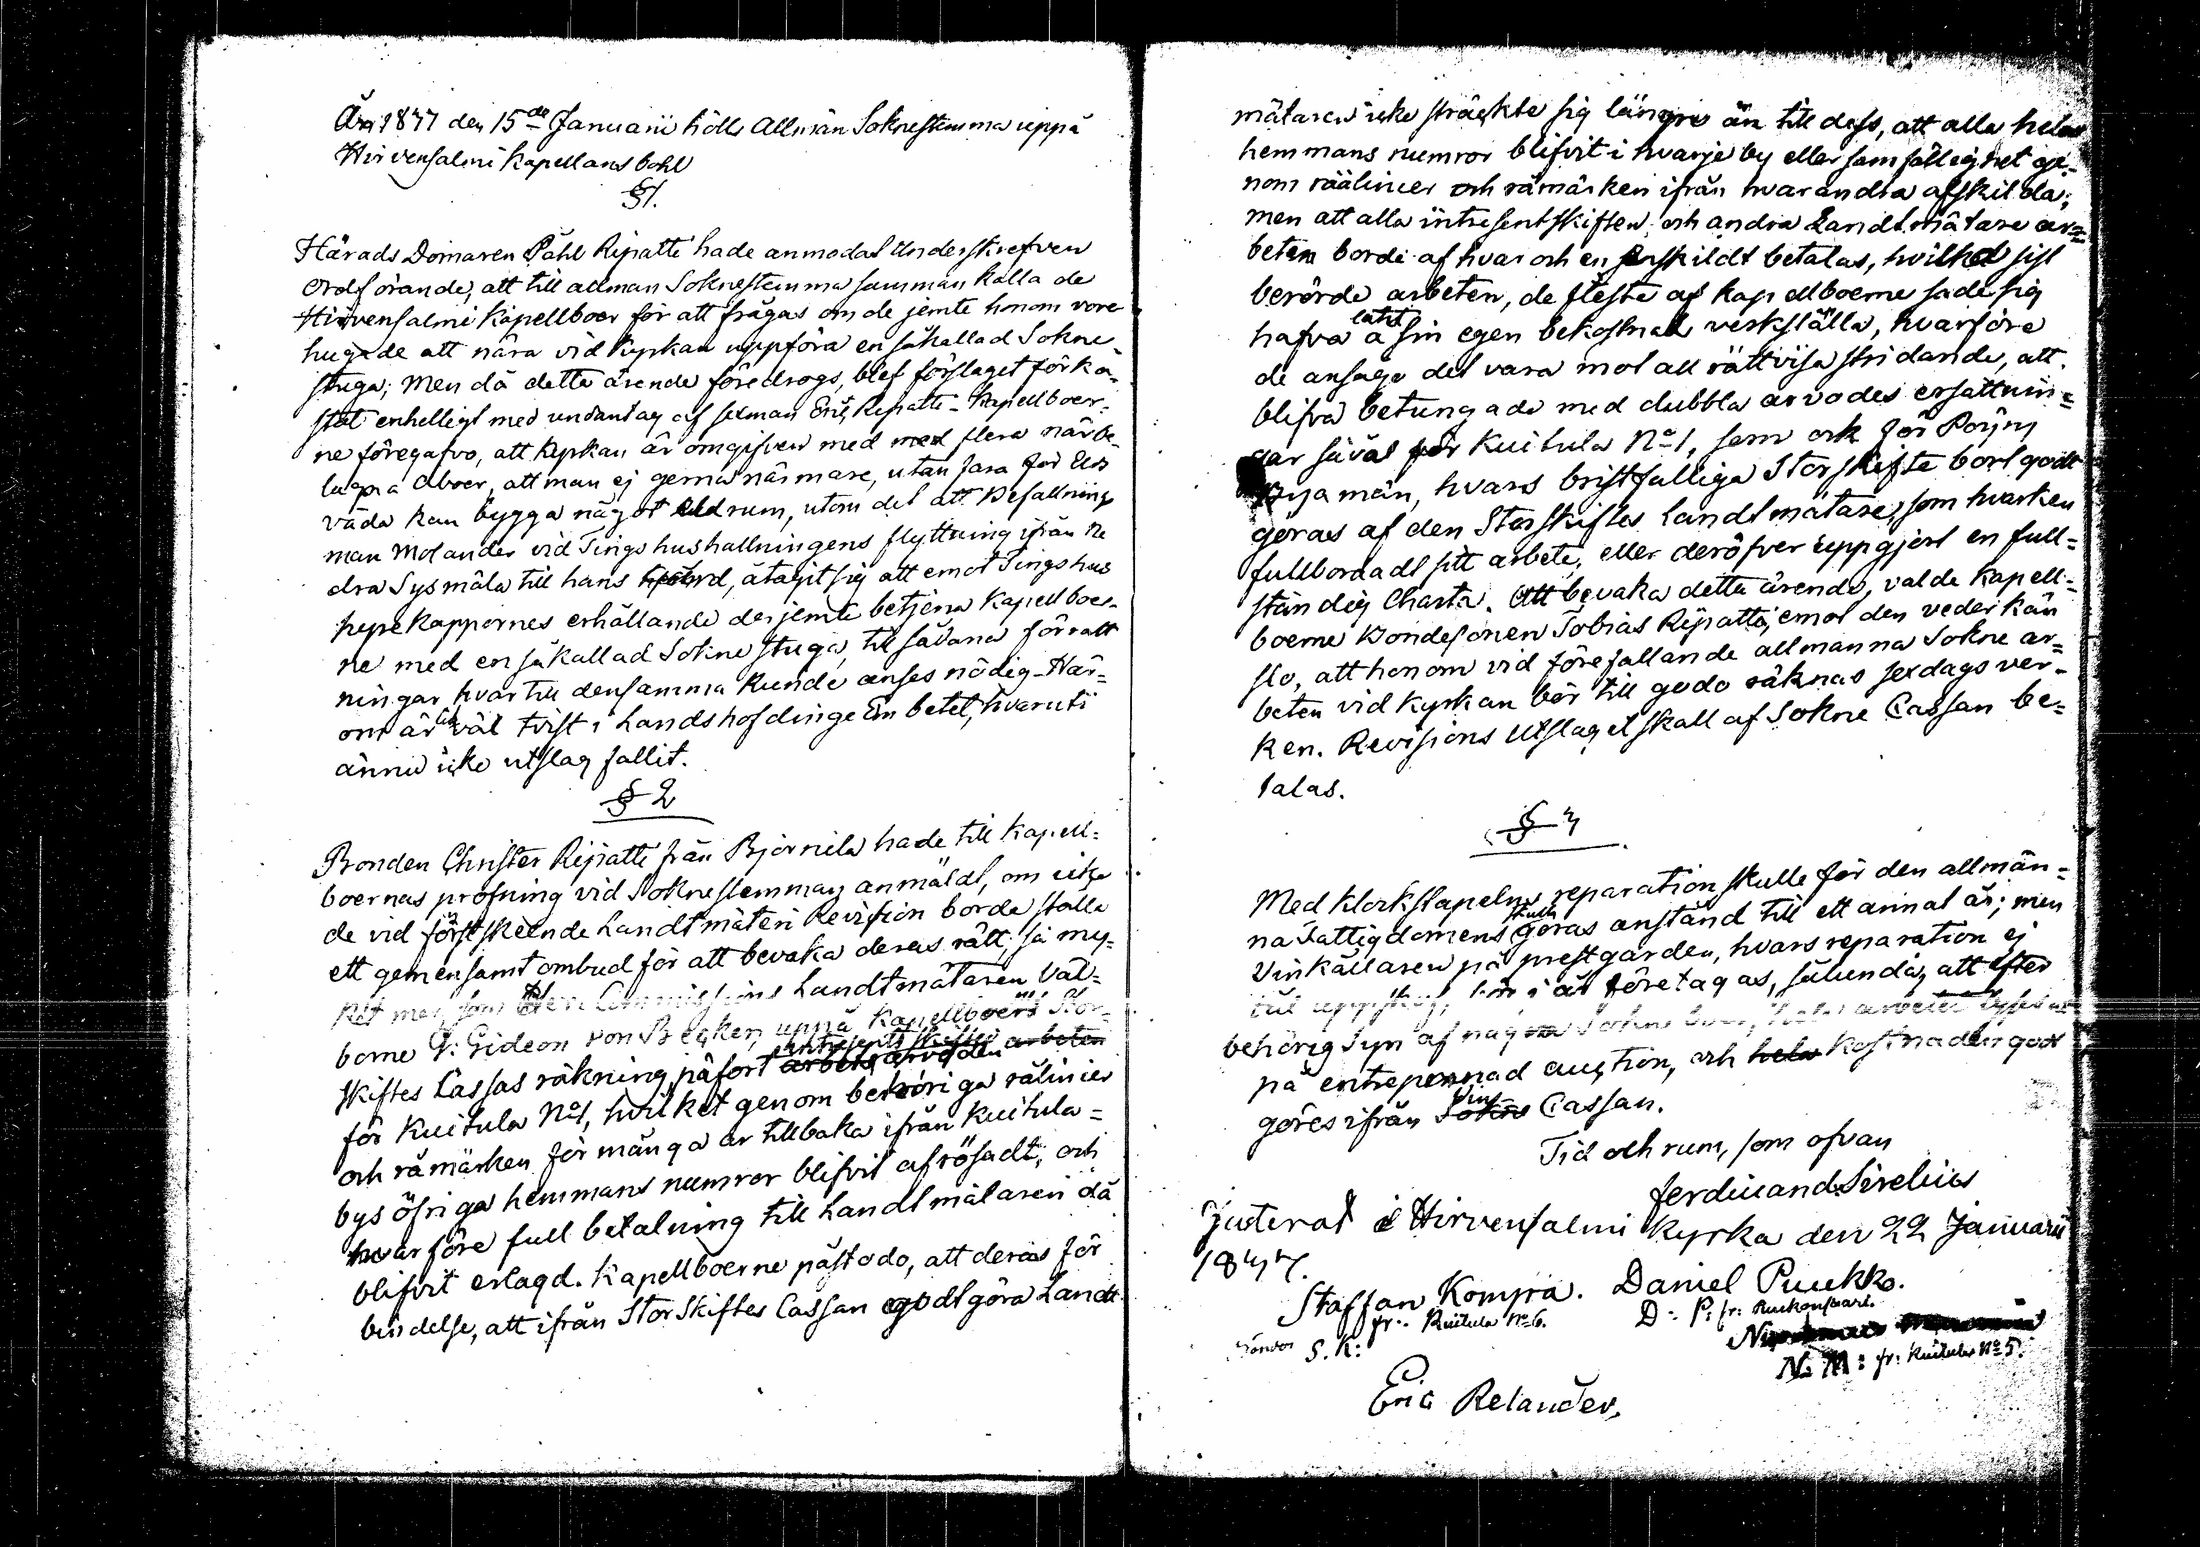 År 1847 den 15de Januarii hölls Allmän Soknestemma uppå
Hirvensalmi Kapellans bohl
§ 1.
Härads Domaren Påhl Ripatti hade anmodat Underskrefven
Ordförande, att till allmän Soknestemma samman kalla de
Hirvensalmi Kapellboer för att frågas om de jemte honom vore
hugade att nära vid Kyrkan uppföra en såkallad Sokne
stuga; Men då detta ärende föredrogs, blef förslaget förka-
stat enhelligt med undantag af sexman Eric Ripatti - Kapellboer-
ne föregafvo, att Kyrkan är omgifven med med flera närbe-
lägna Aboer, att man ej gerna närmare, utan fara for Elds
våda kan bygga något eldrum, utom det att Befallnings
man Molander vid Tings hushallningens flyttning ifrån Ne
dra Sysmälä till hans, åtagit sig att emot Tingshus
hyre kappornes erhållande derjemte betjena Kapellboer-
ne med en såkallad Sokne stuga, til sådana förratt
ningar hvartill densamma kunde anses nödig - Här-
om är väl tvist i Landshofdinge Embetet, hvaruti
ännu icke utslag fallit.
§ 2
Bonden Christer Ripatti från Björnilä hade till Kapell-
boernas pröfning vid Soknestemman anmäldt, om icke
de vid först skeende Landtmäteri Revision borde ställa
ett gemensamt ombud för att bevaka deras rätt, så my-
ket mer, som Commissions Landtmätaren Väl-
borne G: Gideon von Becker, uppå Kapellboers Stor-
skiftes Cassas räkning, påfört intresents skiftes arbeten
för Kuitula No 1, hvilket genom behöriga rålinier
och råmärken för många år tillbaka ifrån Kuitula-
bys öfriga hemmans numror blifvit afrösadt, och
hvarföre full betalning till Landtmätaren då
blifvit erlagd. Kapellboerne påstodo, att deras för
bindelse, att ifrån Storskiftes Cassan godtgöra Landt
mätaren icke sträckte sig längre än till dess, att alla hela
hemmans numror blifvit i hvarje by eller samfällighet ge-
nom råålinier och råmärken ifrån hvarandra afskilda;
men att alla intresentskiften och andra Landtmätare ar-
beten borde af hvar och en enskildt betalas, hvilket sist
berörde arbeten, de fleste af Kapellboerne sade sig
hafva låtit å sin egen bekostnad verkställa, hvarföre
de ansago det vara mot all rättvisa stridande, att
blifva betungade med dubbla arvodes ersättnin-
gar såväl för Kuitula No 1, som ock för Pöyry
bya män, hvars bristfalliga Storskifte bort godt
göras af den Storskiftes Landtmätare, som hvarken
fullbordadt sitt arbete, eller deröfver uppgjort en full-
ständig Charta. Att bevaka detta ärende, valde Kapell-
boerne Bondesonen Tobias Ripatti, emot den vederkän
slo, att honom vid förefallande allmänna Sokne ar-
beten vid Kyrkan bör till godo räknas sex dags ver-
ken. Revisions Utslaget skall af Sokne Cassan be-
talas.
§ 3
Med klockstapelns reparation skulle för den allmän-
na Fattigdomens skull göras anstånd till ett annat år; men
Vinkällaren på prestgården, hvars reparation ej
tål uppskof, bör i år företagas, sålunda, att efter
behörig Syn af någon
på entreprenad auction, och kostnaden god
göres ifrån Vin- Cassan.
Tid och rum, som ofvan
Ferdinand Sirelius
Justerat i Hirvensalmi Kyrka den 22 Januarii
1847.
Staffan Kompra. Daniel Puukko.
fr: Kuitula No 6. D: P: fr: Puukonsaari.
S. K:
N: M: fr: Kuitula No 5.
Eric Relander.